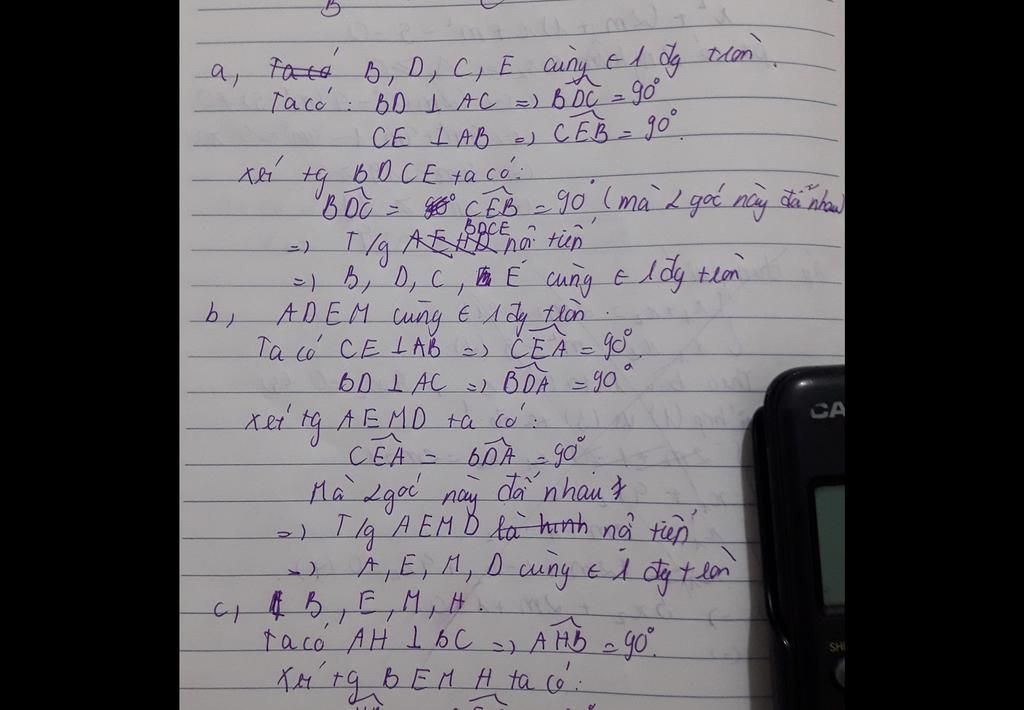 B C
a, Ta có B, D, C, E cùng ∈ 1 đg tròn.
Ta có: BD ⊥ AC => BDC = 90°
CE ⊥ AB => CEB = 90°.
Xét tg BDCE ta có:
BDC = 90° CEB = 90° (mà 2 góc này đối nhau)
=> T/g AEHD BDCE nội tiếp
=> B, D, C, E cùng ∈ 1 đg tròn
b, ADEM cùng ∈ 1 đg tròn.
Ta có CE ⊥ AB => CEA = 90°.
BD ⊥ AC => BDA = 90°
Xét tg AEMD ta có:
CEA = BDA = 90°
Mà 2 góc này đối nhau
=> T/g AEMD là hình nội tiếp
=> A, E, M, D cùng ∈ 1 đg tròn
c, B, E, M, H.
Ta có AH ⊥ BC => AHB = 90°.
Xét tg BEMH ta có:
CA
SHI